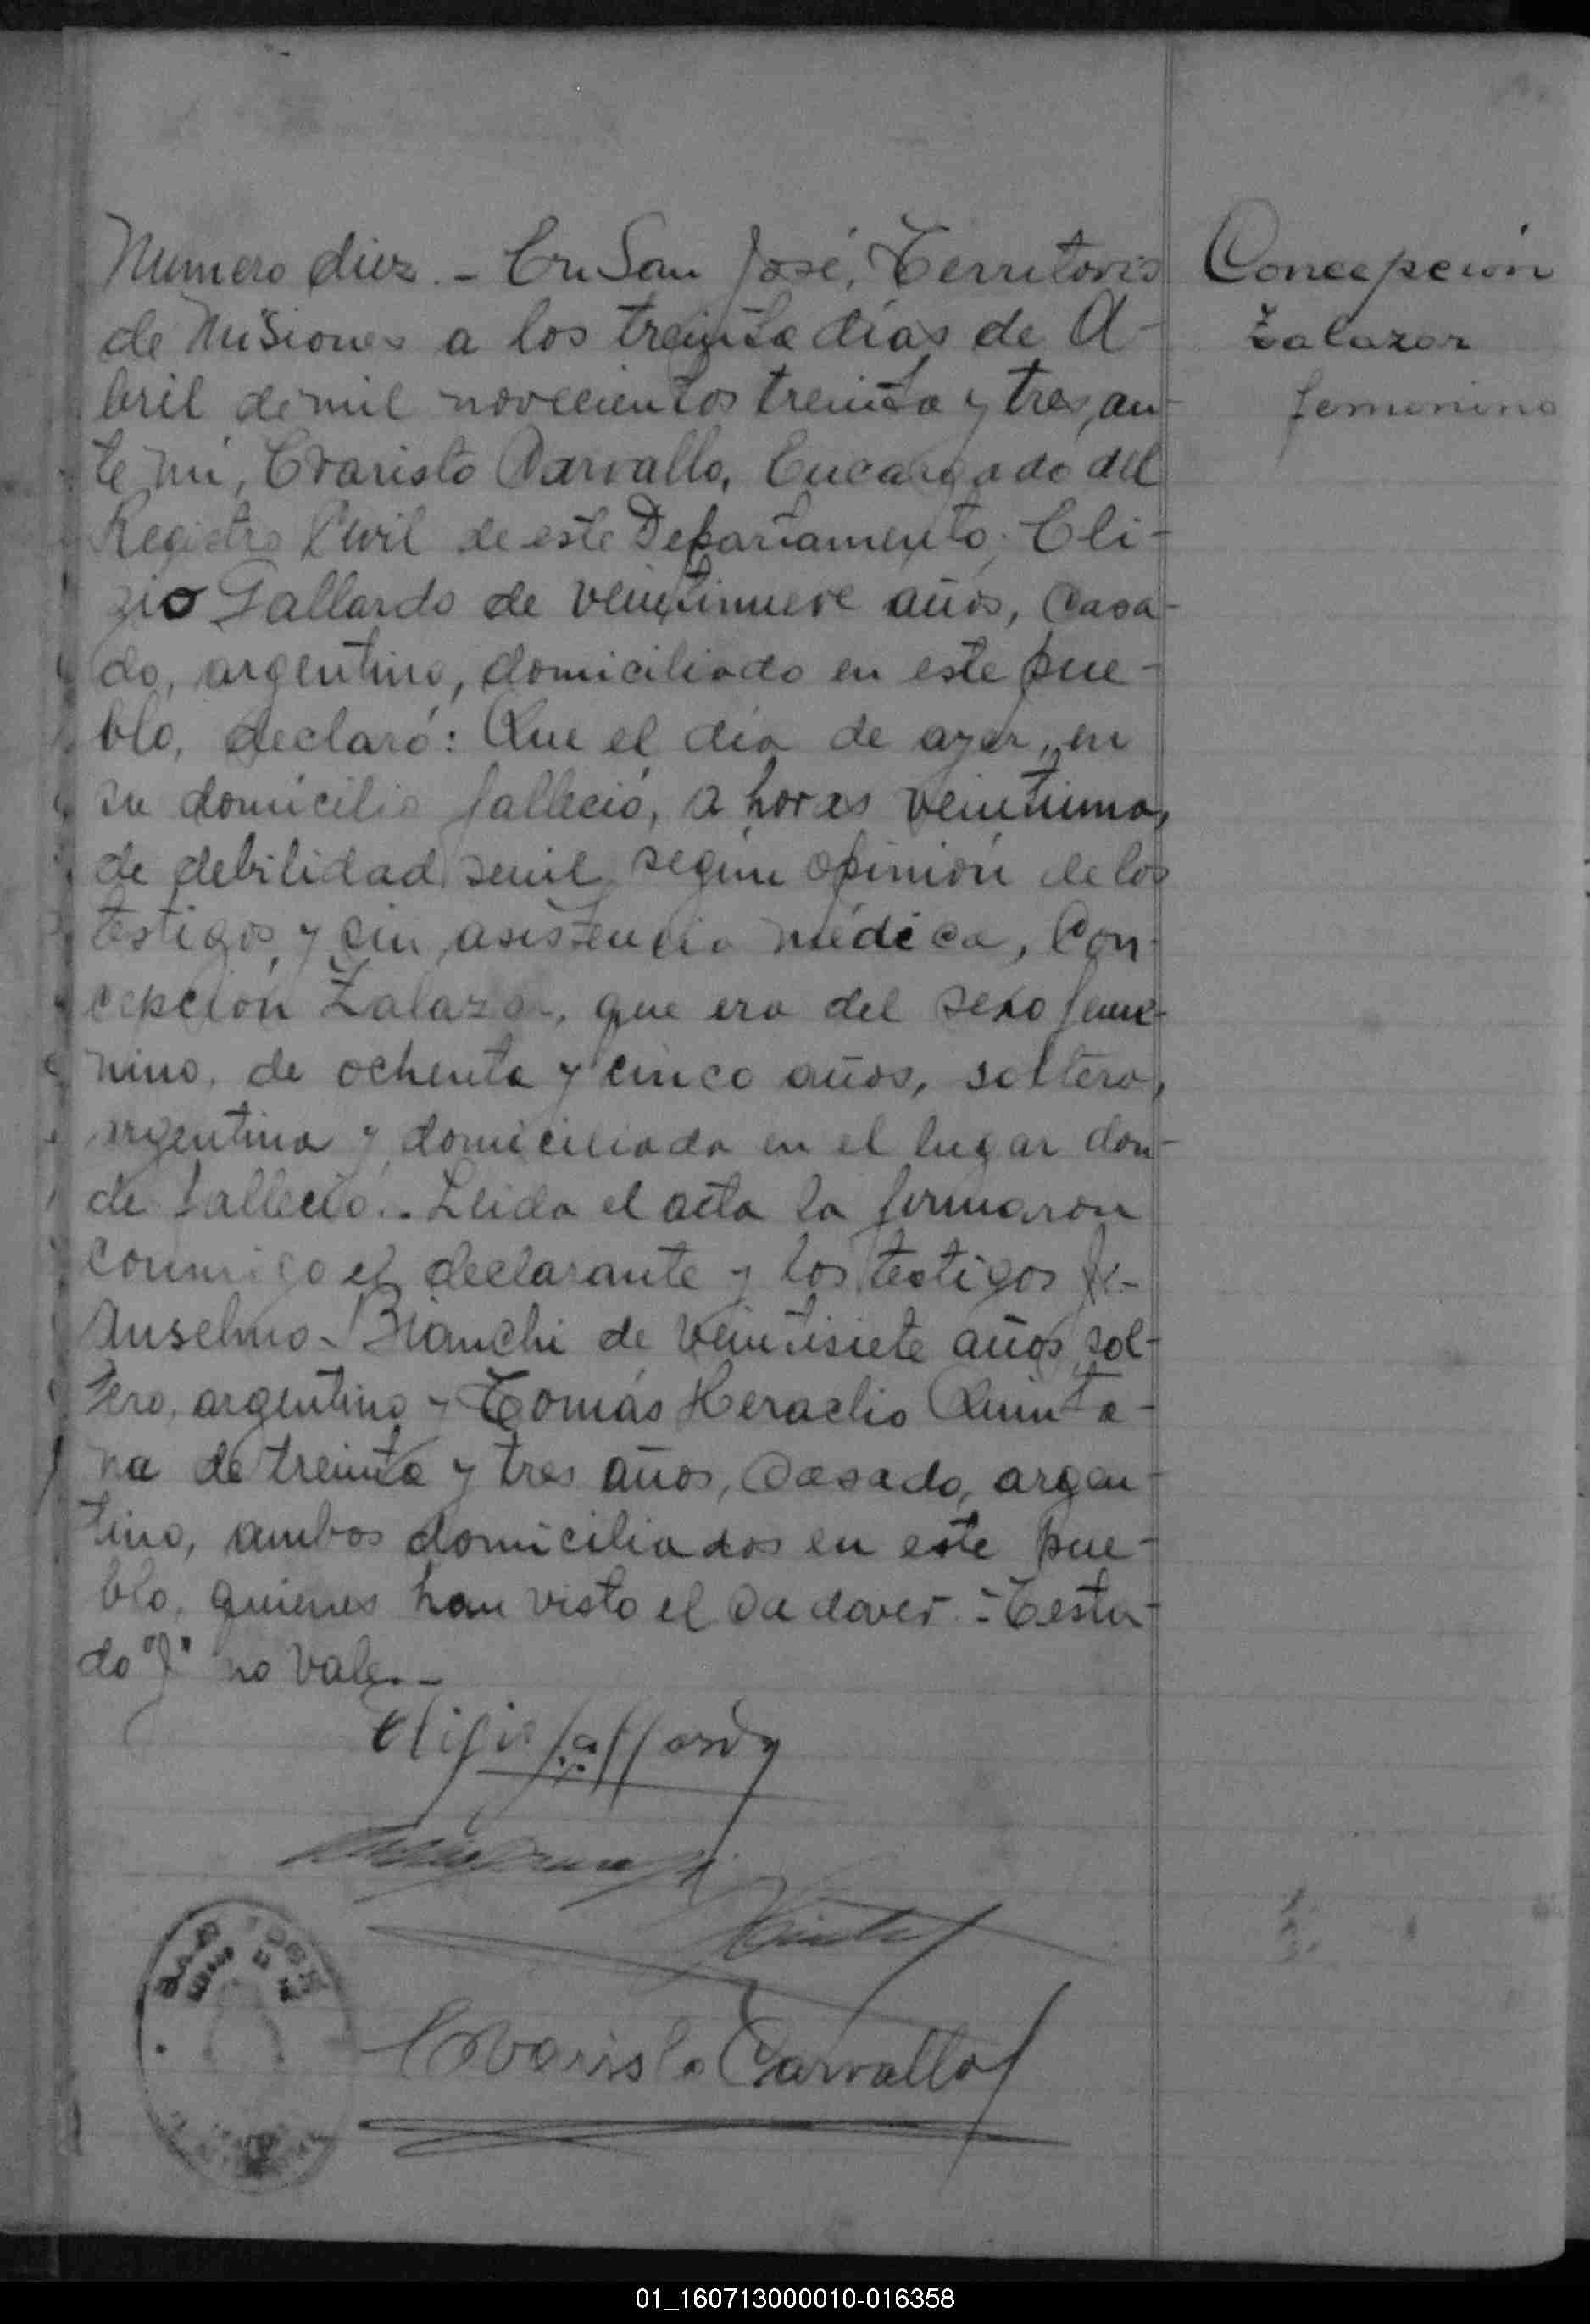 Numero diez. - En San José, Territorio
de Misiones a los treinta días de A-
bril de mil novecientos treinta y tres, an-
te mí, Evaristo Carvallo, Encargado del
Registro Civil de este Departamento, Eli-
gio Gallardo de veintinueve años, casa-
do, argentino, domiciliado en este pue-
blo, declaró: Que el día de ayer, en
su domicilio falleció, a horas veintiuna,
de debilidad senil según opinión de los
testigos, y sin asistencia médica, Con-
cepción Zalazar, que era del sexo feme-
nino, de ochenta y cinco años, soltera,
argentina y domiciliada en el lugar don-
de falleció.- Leida el acta la firmaron
conmigo el declarante y los testigos f-
Anselmo Bianchi de veintisiete años, sol-
tero, argentino y Tomás Heraclio Quinta-
na de treinta y tres años, casado, argen-
tino, ambos domiciliados en este pue-
blo, quienes han visto el cadaver.- Testa-
do "f" no vale.-
Eligio Gallardo
Evaristo Carvallo
Concepción
Zalazar
femenino
01_160713000010-016358